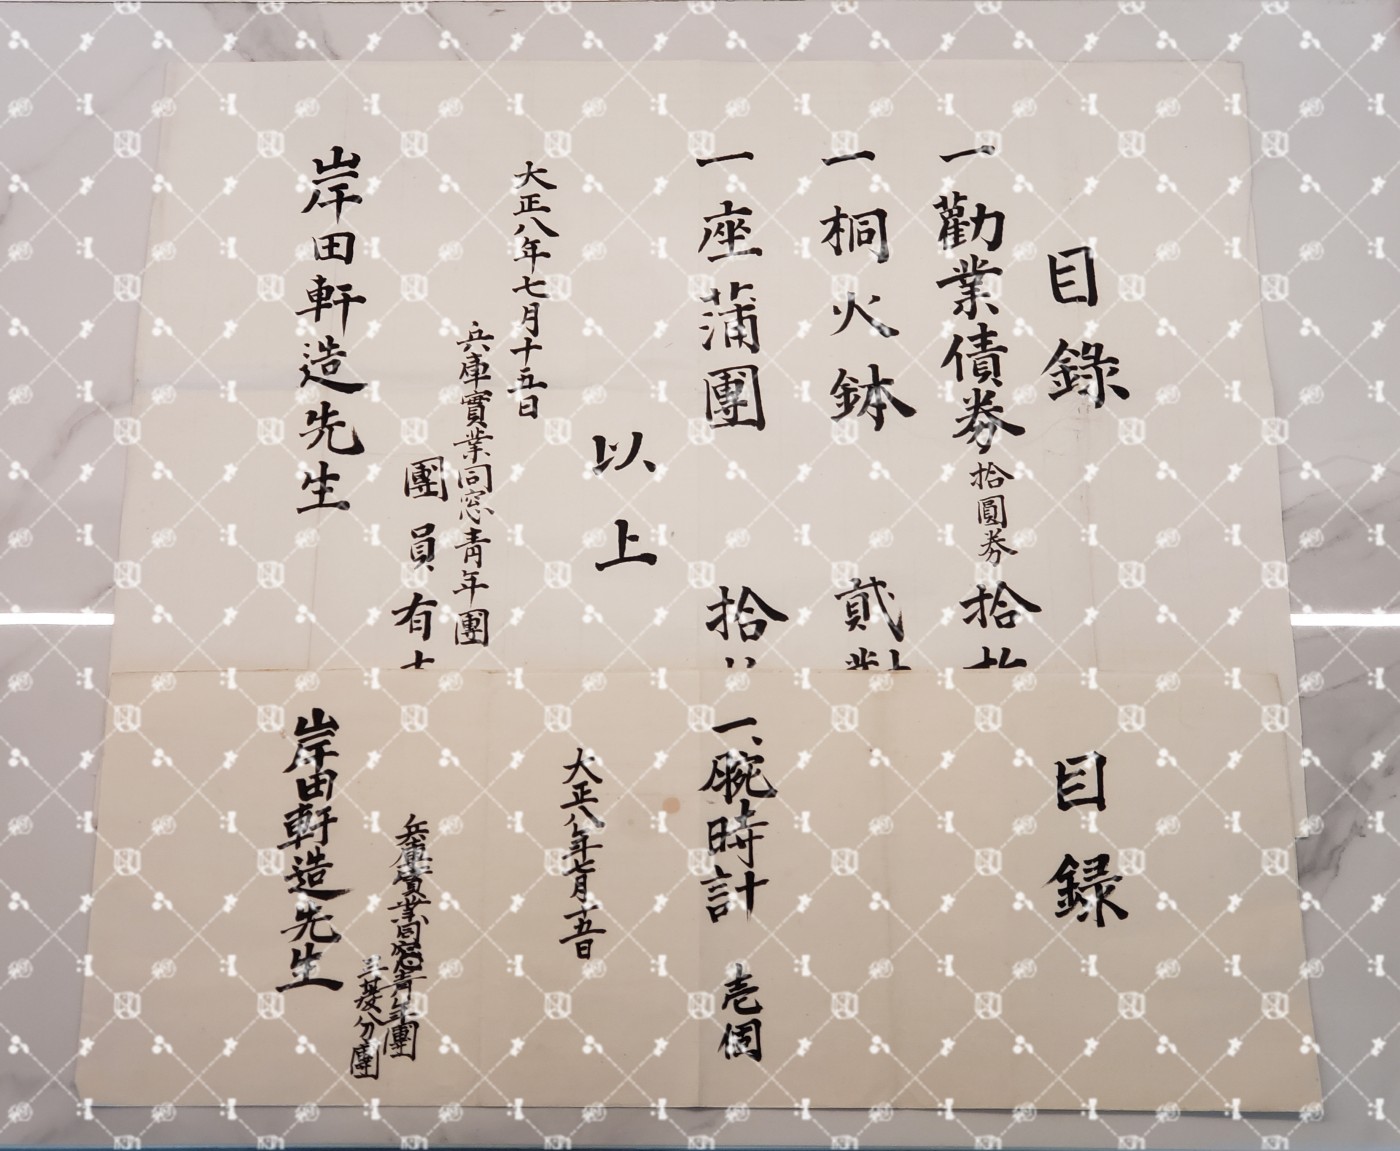 目錄
一勸業債券拾圓券拾
一桐火鉢　貳對
一座蒲團　拾
以上
大正八年七月十五日
兵庫實業同窓青年團
團員有
岸田軒造先生
目録
一、腕時計　壱個
大正八年七月十五日
兵庫實業同窓青年團
分團
岸田軒造先生